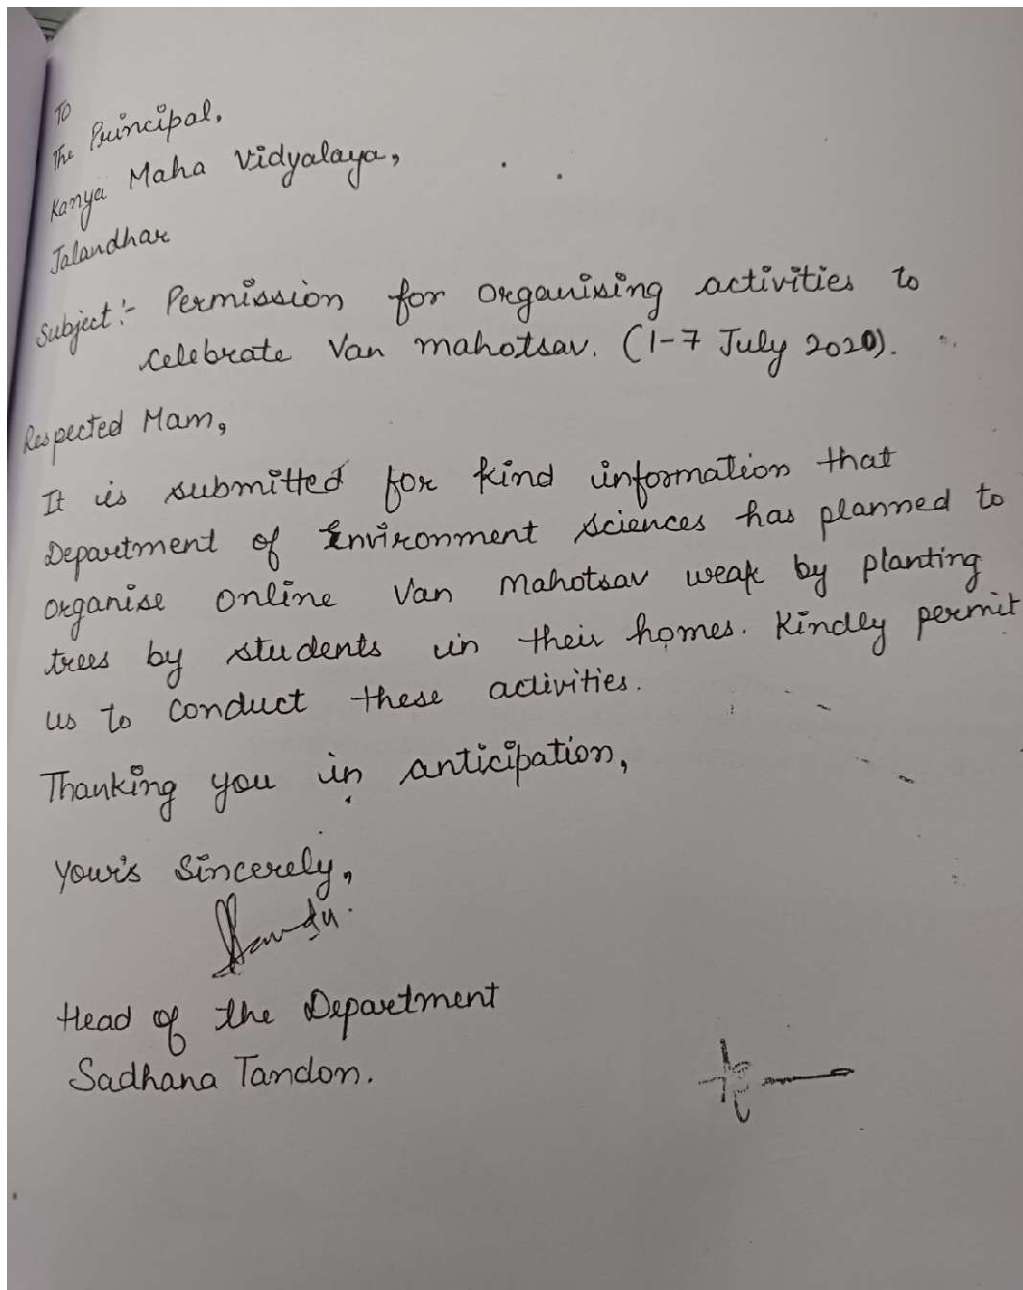 To
The Principal,
Kanya Maha Vidyalaya,
Jalandhar
Subject:- Permission for organising activities to
celebrate Van mahotsav. (1-7 July 2020).
Respected Mam,
It is submitted for kind information that
Department of Environment Sciences has planned to
organise online Van Mahotsav weak by planting
trees by students in their homes. Kindly permit
us to conduct these activities.
Thanking you in anticipation,
Your's Sincerely,
Head of the Department
Sadhana Tandon.